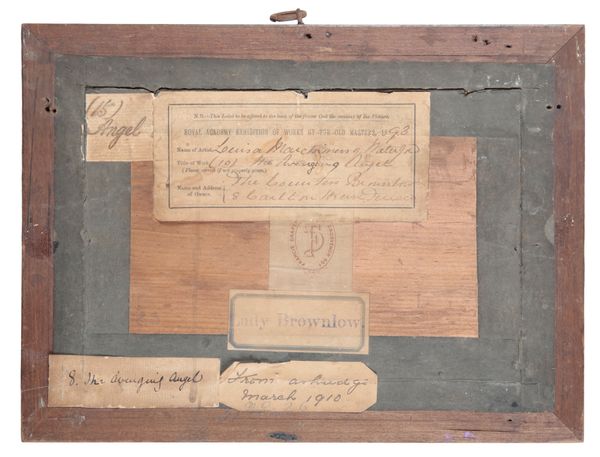 (15)
Angel
N.B.—This Label to be affixed to the back of the frame and the account of the Picture.
ROYAL ACADEMY EXHIBITION OF WORKS BY THE OLD MASTERS, 1893
Name of Artist Louisa Marchioness Waterford
Title of Work (10) The Avenging Angel
Name and Address of Owner. The Countess Brownlow
8 Carlton House Terrace
Lady Brownlow.
8. The Avenging Angel
From Ashridge
March 1910